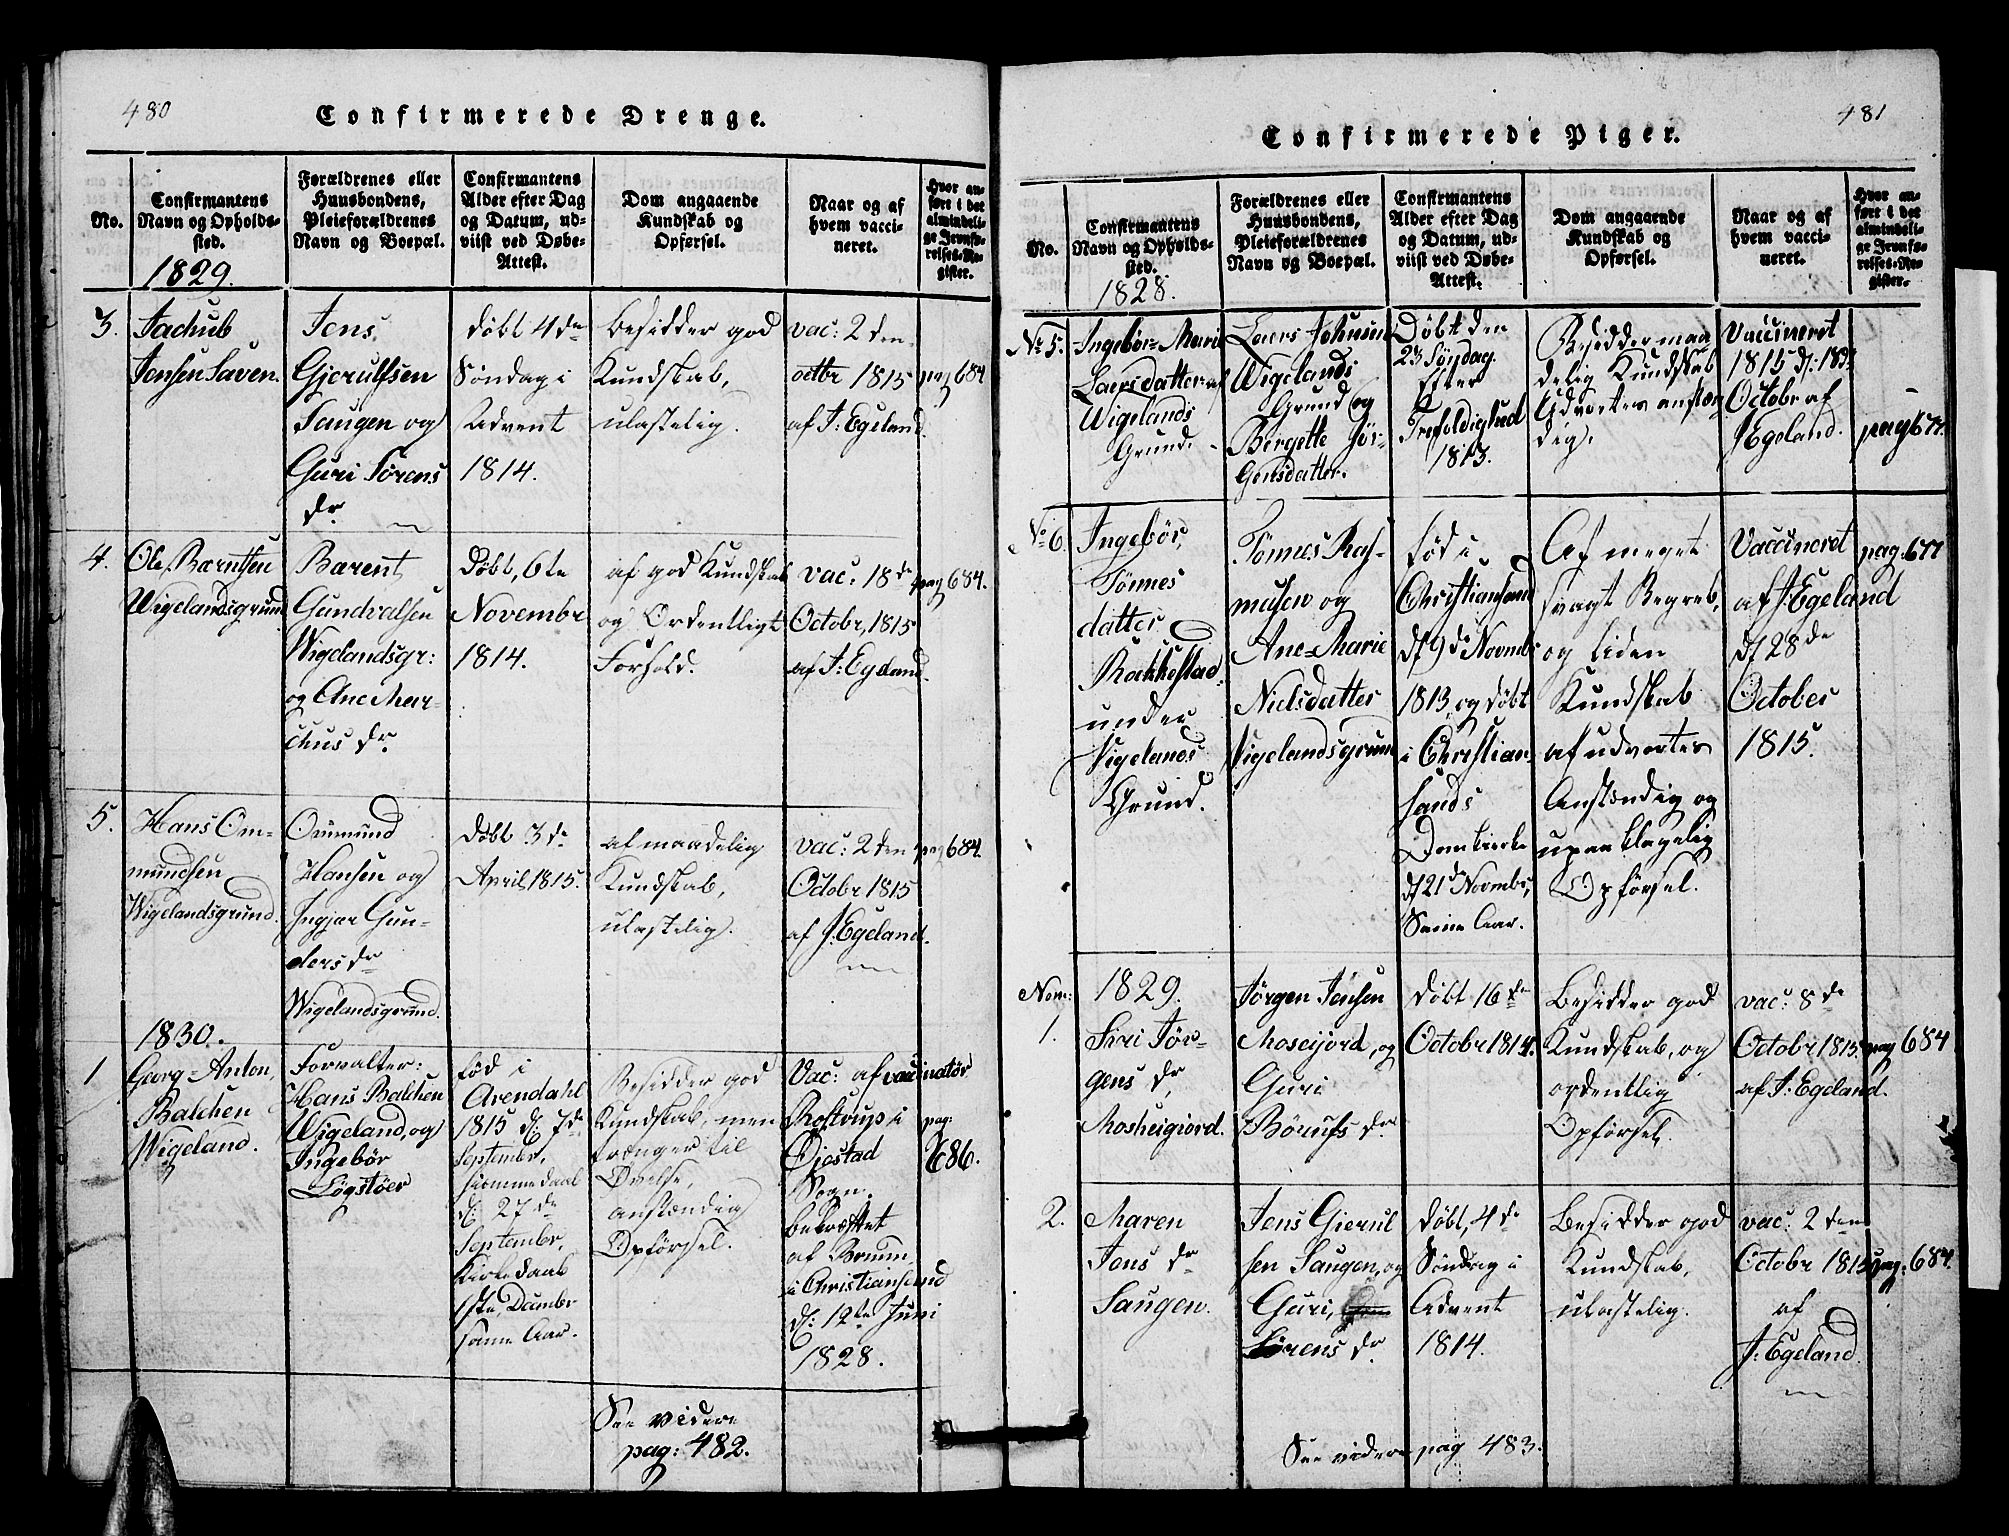 480
Confirmerede Drenge.
No.
Confirmantens
Navn og Opholds-
sted.
1829.
Forældrenes eller
Huusbondens,
Pleieforældrenes
Navn og Boepæl.
Confirmantens
Alder efter Dag
og Datum, ud-
viist ved Døbe-
Attest.
Dom angaaende
Kundskab og
Opførsel.
Naar og af
hvem vacci-
neret.
Hvor an-
ført i det
almindeli-
ge Jevnfø-
relses-Re-
gister.
3.
Jachub
Jensen Saven.
Jens
Gjerulfsen
Saugen og
Guri Sørens
dr.
døbt 4de
Søndag i
Advent
1814.
besidder god
Kundskab,
ulastelig.
vac: 2den
octbr 1815
af J: Egeland.
pag 684
4.
Ole Bærntsen
Wigelandsgrund
Barent
Gundvalsen
Wigelandsgr:
og Ane Mar-
chus dr.
Døbt, 6te
Novembr
1814.
af god Kundskab
og Ordentligt
Forhold.
vac: 18de
Octobr, 1815
af J: Egeland.
pag 684.
5.
Hans Om-
mundsen
Wigelandsgrund.
Ommund
Hansen og
Ingjær Gun-
ders dr
Wigelandsgrund.
døbt 3de
April 1815.
af maadelig
Kundskab,
ulastelig.
vac: 2den
Octobr 1815
af J. Egeland.
pag 684.
1830.
1
Georg = Anton,
Balchen
Wigeland.
Forvalter:
Hans Balchen
Wigeland, og
Ingebør
Løgstøer
fød i
Arendahl
1815 d: 7de
September,
hiemme daab
d: 27de
September,
Kirke daab
1ste, Dcembr
samme Aar.
Besidder god
Kundskab, men
trænger til
Øvelse,
anstændig
Opførsel.
Vac: af vaccinatør
Rostrup i
Øiestad
Sogn.
bekræftet
af Brunn,
i Christiansand
d: 12te Juni
1828.
pag:
686.
See videre
pag: 482.
481
Confirmerede Piger.
No.
Confirmantens
Navn og Opholds-
sted.
1828.
Forældrenes eller
Huusbondens,
Pleieforældrenes
Navn og Boepæl.
Confirmantens
Alder efter Dag
og Datum, ud-
viist ved Døbe-
Attest.
Dom angaaende
Kundskab og
Opførsel.
Naar og af
hvem vacci-
neret.
Hvor an-
ført i det
almindeli-
ge Jevnfø-
relses-Re-
gister.
No 5.
Ingebør = Marie
Laersdatter af
Wigelands
Grund.
Laers Johnsen
Wigelands
Grund og
Bergette Jør-
Gensdatter.
Døbt den
23 Søndag
Efter
Trefoldighed
1813.
Besidder maa
delig Kundskab
Udvortes anstæn
dig.
Vaccineret
1815 d: 18de
Octobr af
J Egeland.
pag 677.
No 6.
Ingebør,
Tønnes
datter
Rakkestad
under
Vigelands
Grund.
Tønnes Ras-
musen og
Ane = Marie
Nielsdatter
Vigelandsgrund
fød i
Christiansand
d 9de Novmbr
1813, og døbt
i Christian-
sands
Domkirke
d 21de Novmbr,
Samme Aar.
Af meget
svagt Begreb,
og liden
Kundskab
af udvortes
Anstændig og
upaaklagelig
Opførsel.
Vaccineret
af J Egeland
d 28de
October
1815.
pag. 677
Nom:
1.
1829.
Siri Jør-
gens dr,
Mosheigiord.
Jørgen Jensen
Moseijord, og
Guri
Børufs dr.
døbt 16de
Octobr 1814.
Besidder god
Kundskab, og
ordentlig
Opførsel.
vac: 8de
Octobr 1815.
af J: Egeland.
pag 684
2.
Maren
Jens dr
Saugen.
Jens Gierul
sen Saugen, og
Guri,
Sørens dr.
døbt, 4de
Søndag i
Advent
1814.
Besidder god
Kundskab,
ulastelig.
vac: 2den
Octobr 1815
af
J: Egeland.
pag: 684.
See videre pag 483.